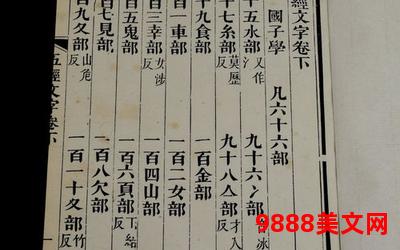 經文字卷下
國子學
凡六十六部
十五水部 又作
九十六冫部 冰
十七糸部 莫歷反
九十八亼部 才入反
十九食部
一百金部
百一車部
一百二女部
百三幸部 女涉反
一百四山部
百五鬼部
一百六頁部 下結
百七見部
一百八欠部
百九夊部 山危反
一百一十夂部 竹反
五經文字卷下
9888美文网